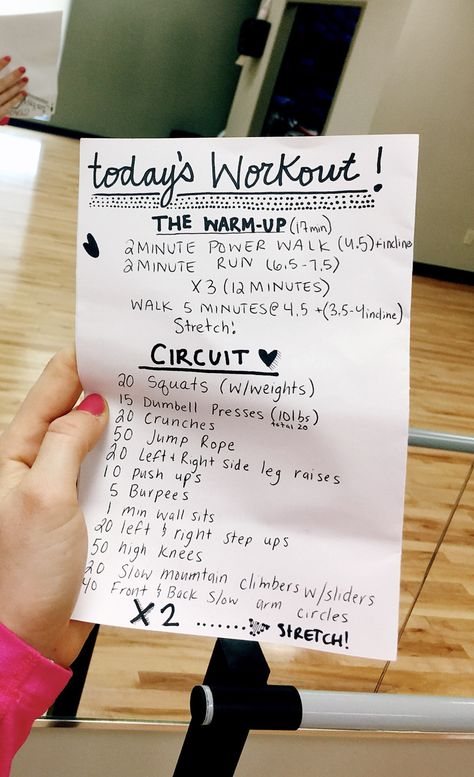 today's Workout!
THE WARM-UP (17min)
2 MINUTE POWER WALK (4.5)+incline
2 MINUTE RUN (6.5-7.5)
X3 (12 MINUTES)
WALK 5 MINUTES@ 4.5 +(3.5-4incline)
Stretch!
CIRCUIT ♥
20 Squats (w/weights)
15 Dumbell Presses (10lbs)
total 20
20 Crunches
50 Jump Rope
20 Left + Right side leg raises
10 push up's
5 Burpees
1 min wall sits
20 left & right step ups
50 high knees
20 Slow mountain climbers w/sliders
40 Front & Back Slow arm circles
X2 ....... STRETCH!